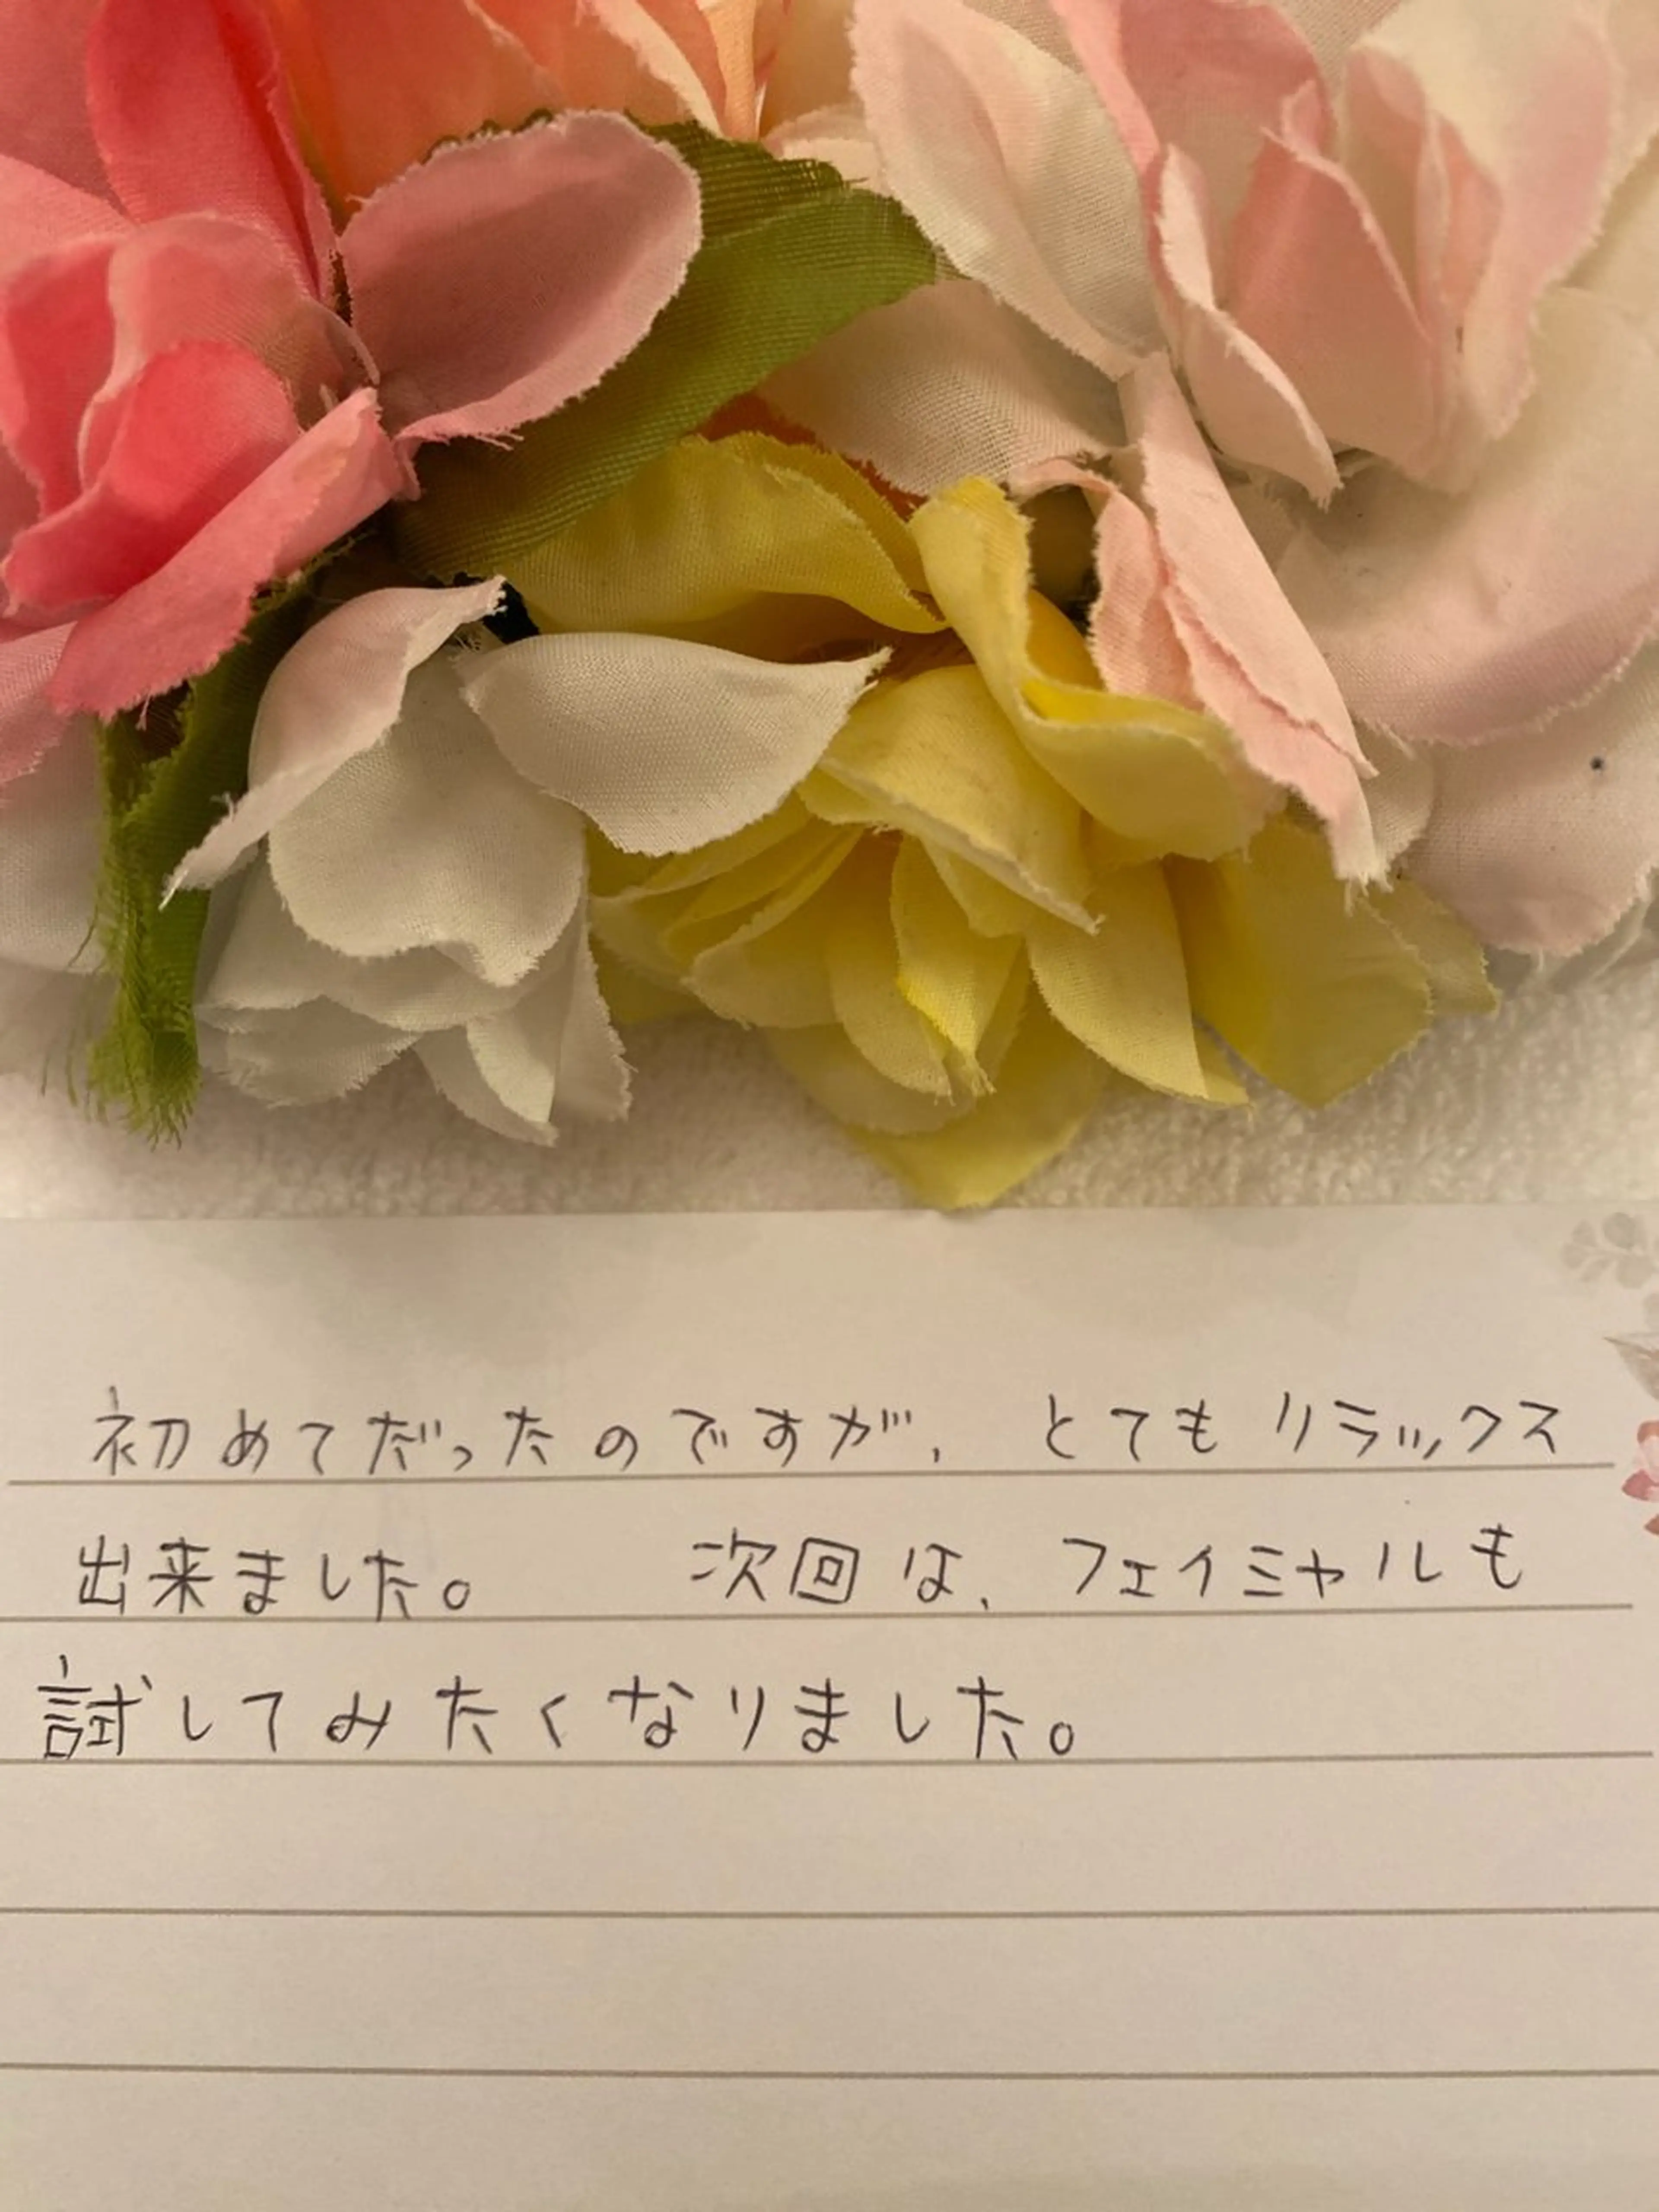 初めてだったのですが、とてもリラックス
出来ました。 次回は、フェイミャルも
試してみたくなりました。